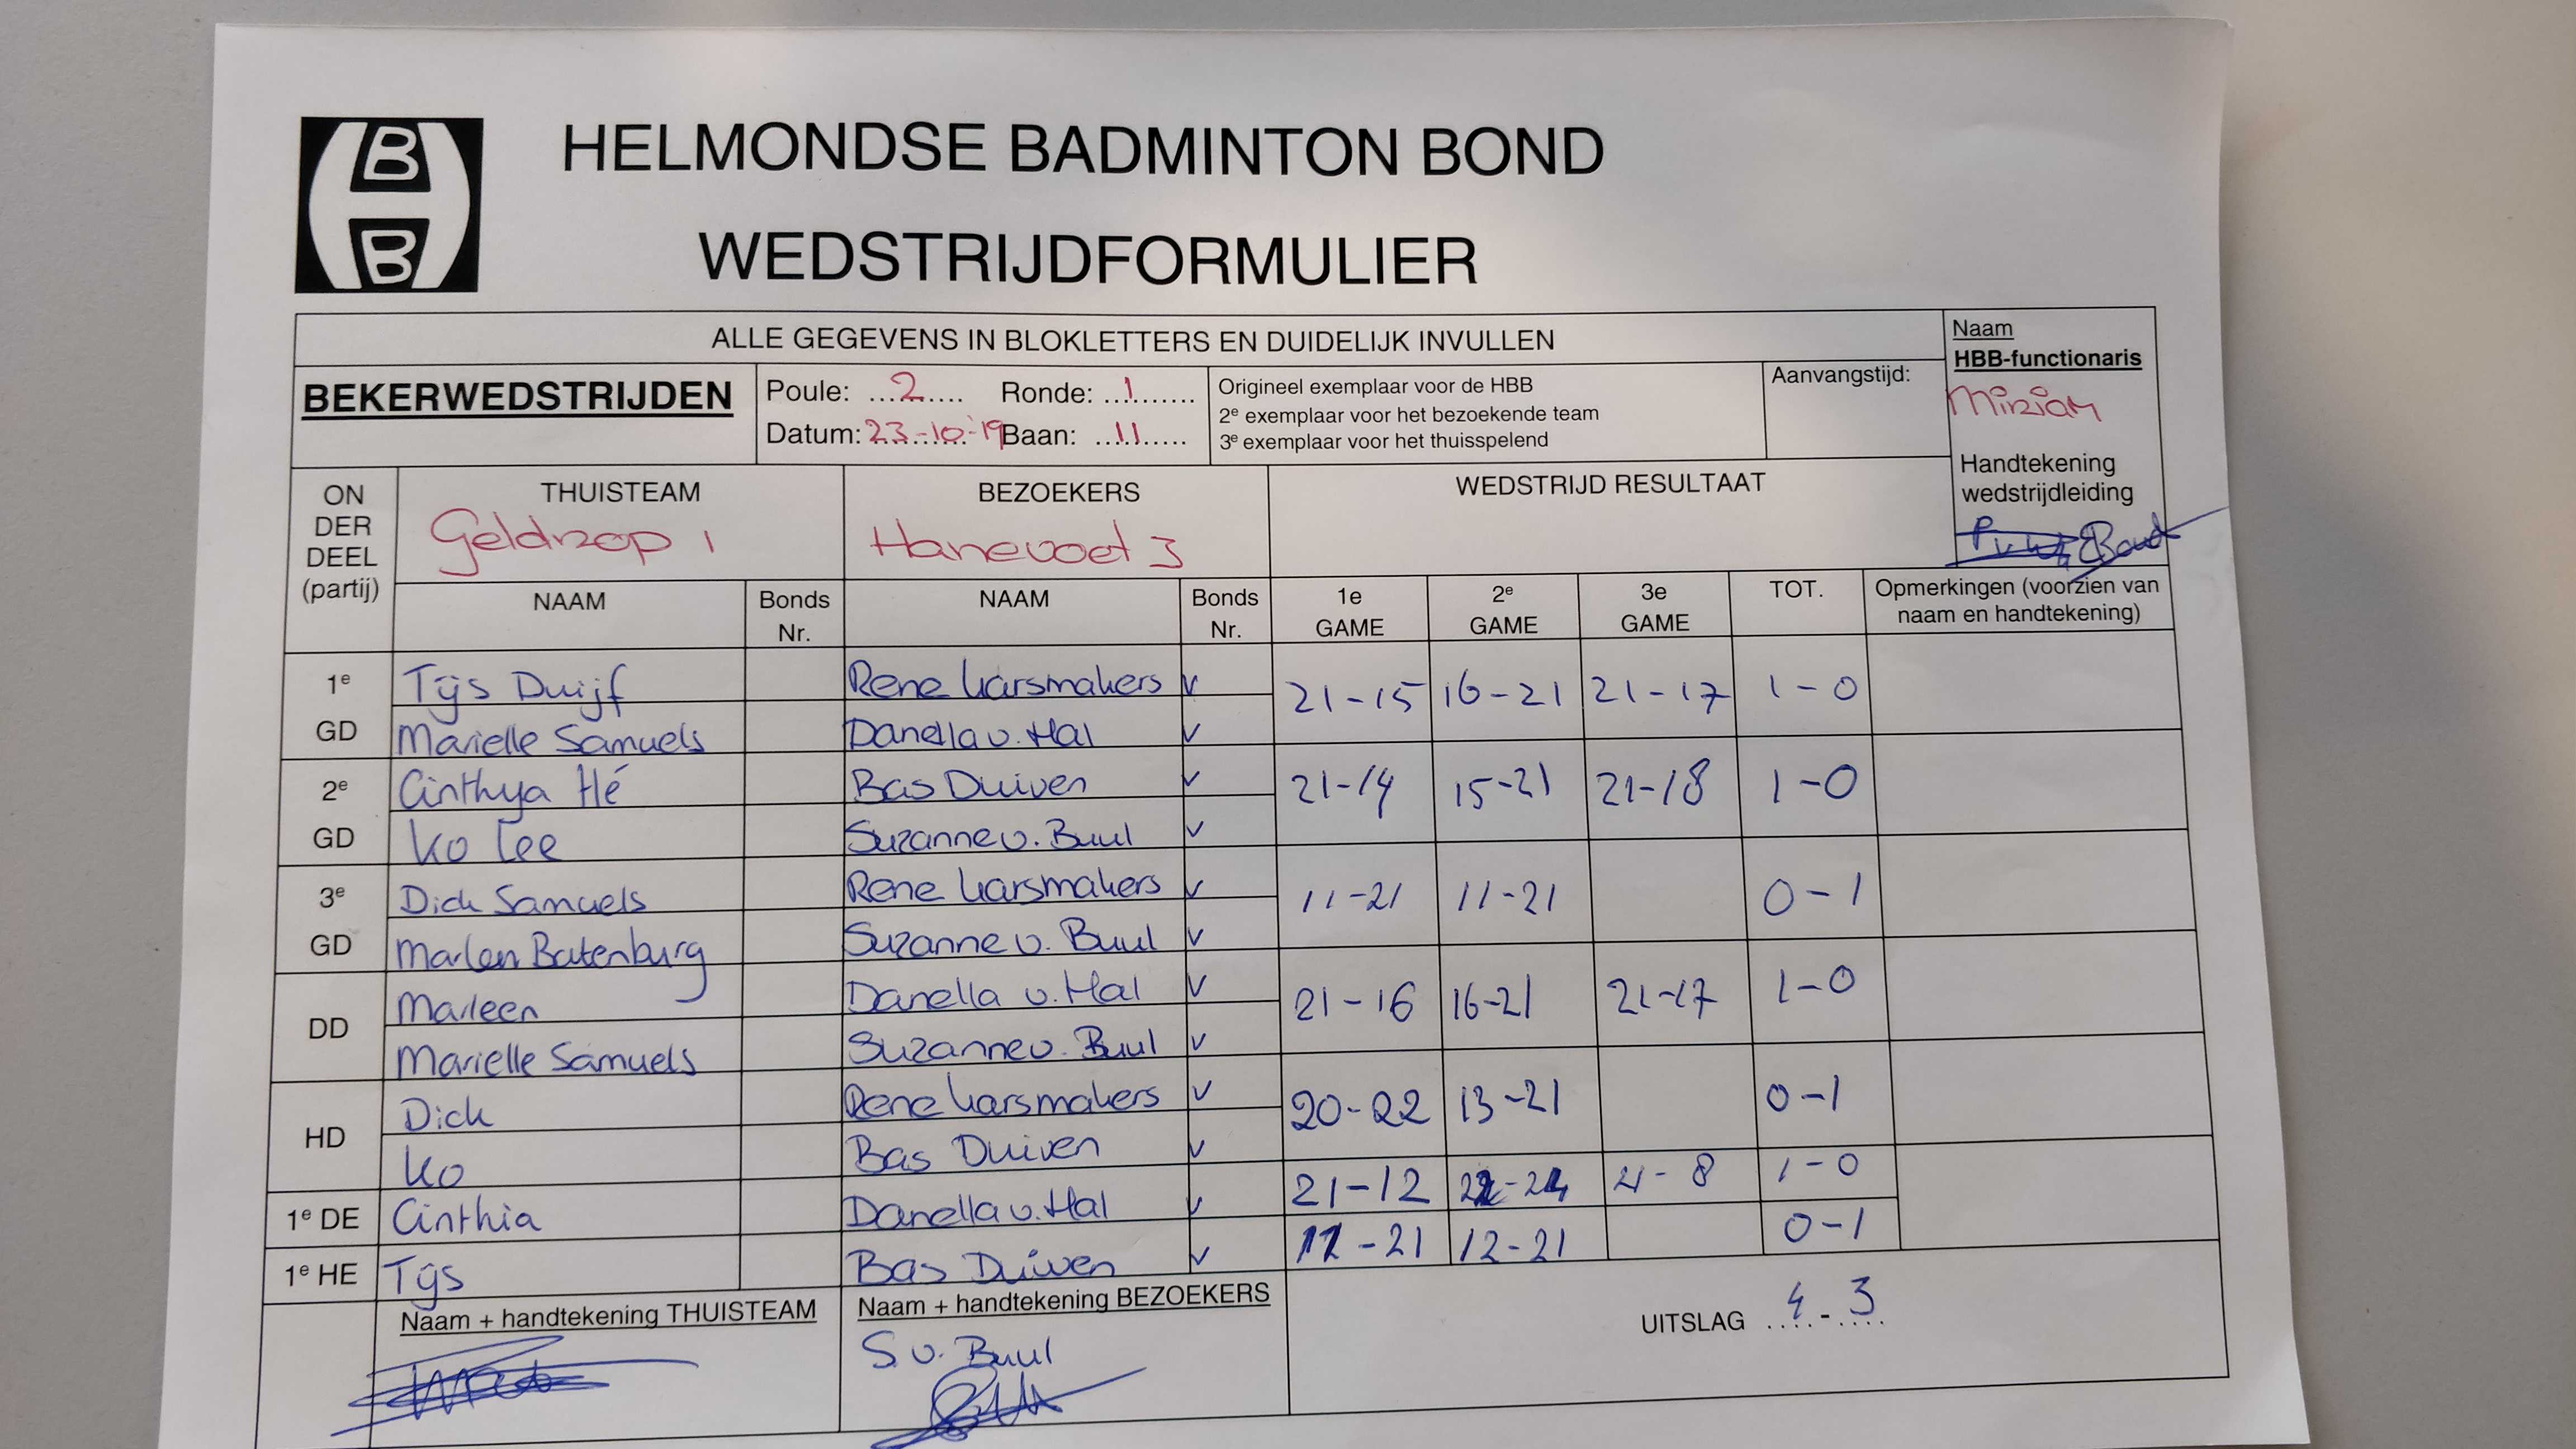 HBB
HELMONDSE BADMINTON BOND
WEDSTRIJDFORMULIER
ALLE GEGEVENS IN BLOKLETTERS EN DUIDELIJK INVULLEN
Naam
HBB-functionaris
Miriam
Handtekening
wedstrijdleiding
BEKERWEDSTRIJDEN
Poule: ...2..... Ronde: ..1........
Datum: 23-10-'19 Baan: ..11......
Origineel exemplaar voor de HBB
2e exemplaar voor het bezoekende team
3e exemplaar voor het thuisspelend
Aanvangstijd:
ON
DER
DEEL
(partij)
THUISTEAM
Geldrop 1
BEZOEKERS
Hanevoet 3
WEDSTRIJD RESULTAAT
NAAM Bonds Nr. NAAM Bonds Nr. 1e GAME 2e GAME 3e GAME TOT. Opmerkingen (voorzien van naam en handtekening)
1e Tijs Duijf Rene Karsmakers v 21-15 16-21 21-17 1-0
GD Marielle Samuels Danella v. Hal v
2e Cinthya Hé Bas Duiven v 21-14 15-21 21-18 1-0
GD Ko Lee Suzanne v. Buul v
3e Dick Samuels Rene Karsmakers v 11-21 11-21 0-1
GD Marleen Batenburg Suzanne v. Buul v
DD Marleen Danella v. Hal v 21-16 16-21 21-17 1-0
Marielle Samuels Suzanne v. Buul v
HD Dick Rene Karsmakers v 20-22 13-21 0-1
Ko Bas Duiven v
1e DE Cinthia Danella v. Hal v 21-12 22-24 21-8 1-0
1e HE Tijs Bas Duiven v 12-21 12-21 0-1
Naam + handtekening THUISTEAM
Naam + handtekening BEZOEKERS
S. v. Buul
UITSLAG 4 - 3